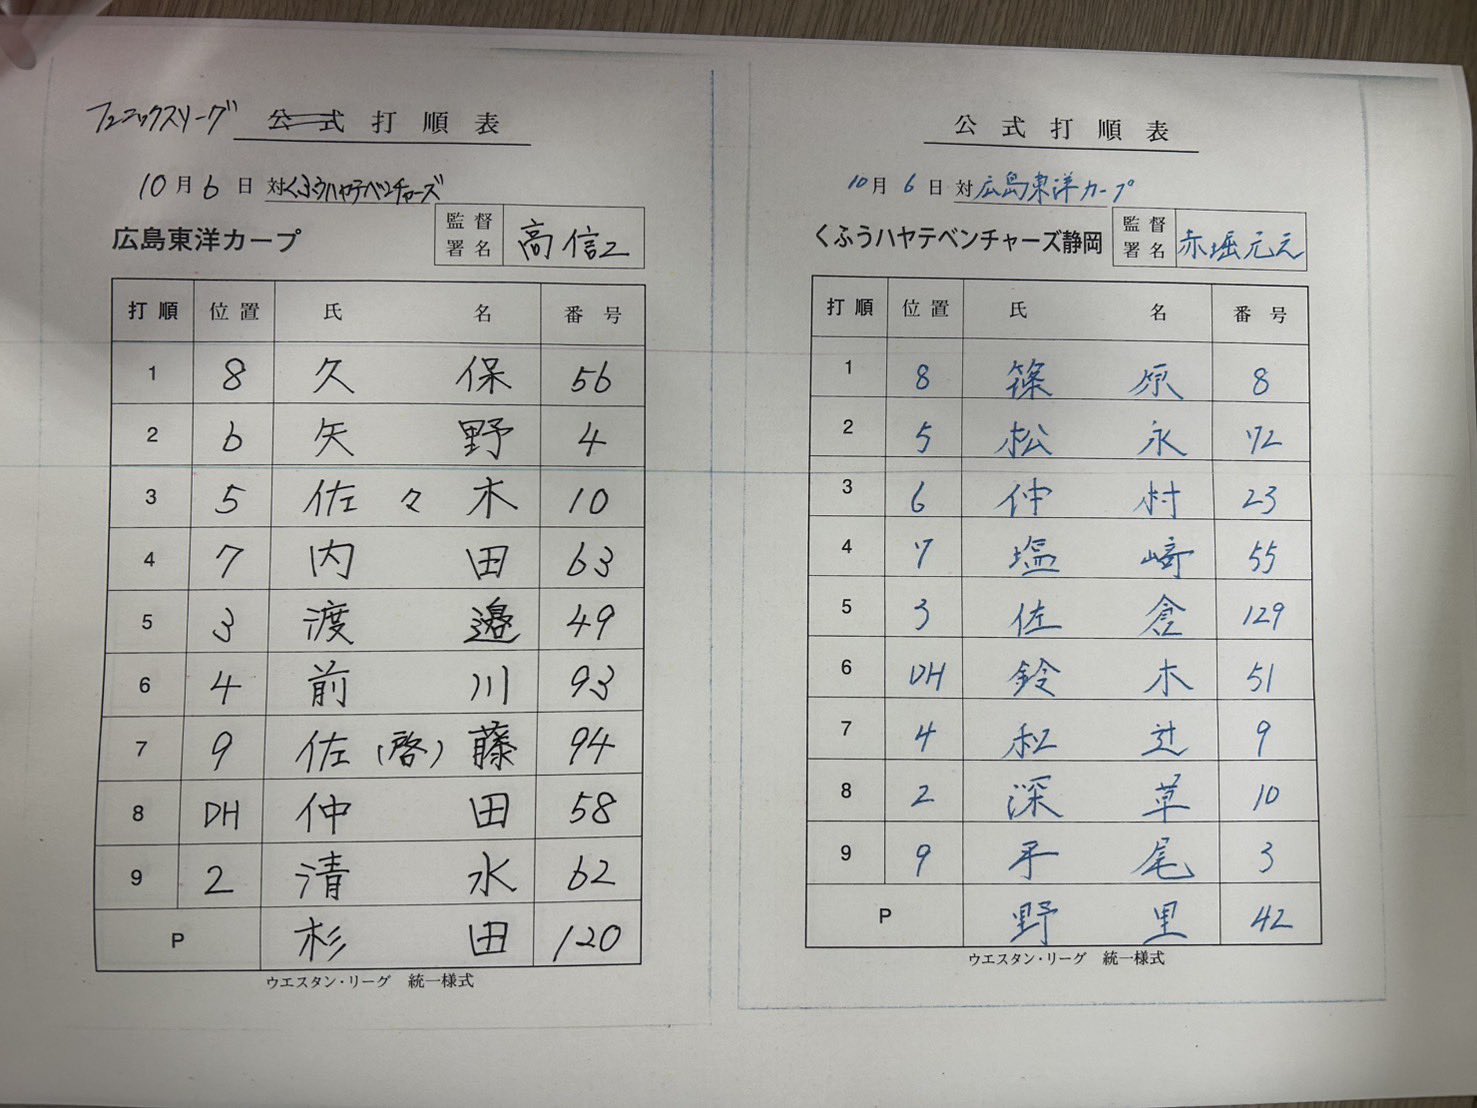 フェニックスリーグ 公式打順表
10月6日 対くふうハヤテベンチャーズ
広島東洋カープ 監督署名 高信二
打順 位置 氏名 番号
1 8 久保 56
2 6 矢野 4
3 5 佐々木 10
4 7 内田 63
5 3 渡邉 49
6 4 前川 93
7 9 佐(啓)藤 94
8 DH 仲田 58
9 2 清水 62
P 杉田 120
ウエスタン・リーグ 統一様式
公式打順表
10月6日 対広島東洋カープ
くふうハヤテベンチャーズ静岡 監督署名 赤堀元之
打順 位置 氏名 番号
1 8 篠原 8
2 5 松永 72
3 6 仲村 23
4 7 塩﨑 55
5 3 佐倉 129
6 DH 鈴木 51
7 4 松辻 9
8 2 深草 10
9 9 平尾 3
P 野里 42
ウエスタン・リーグ 統一様式